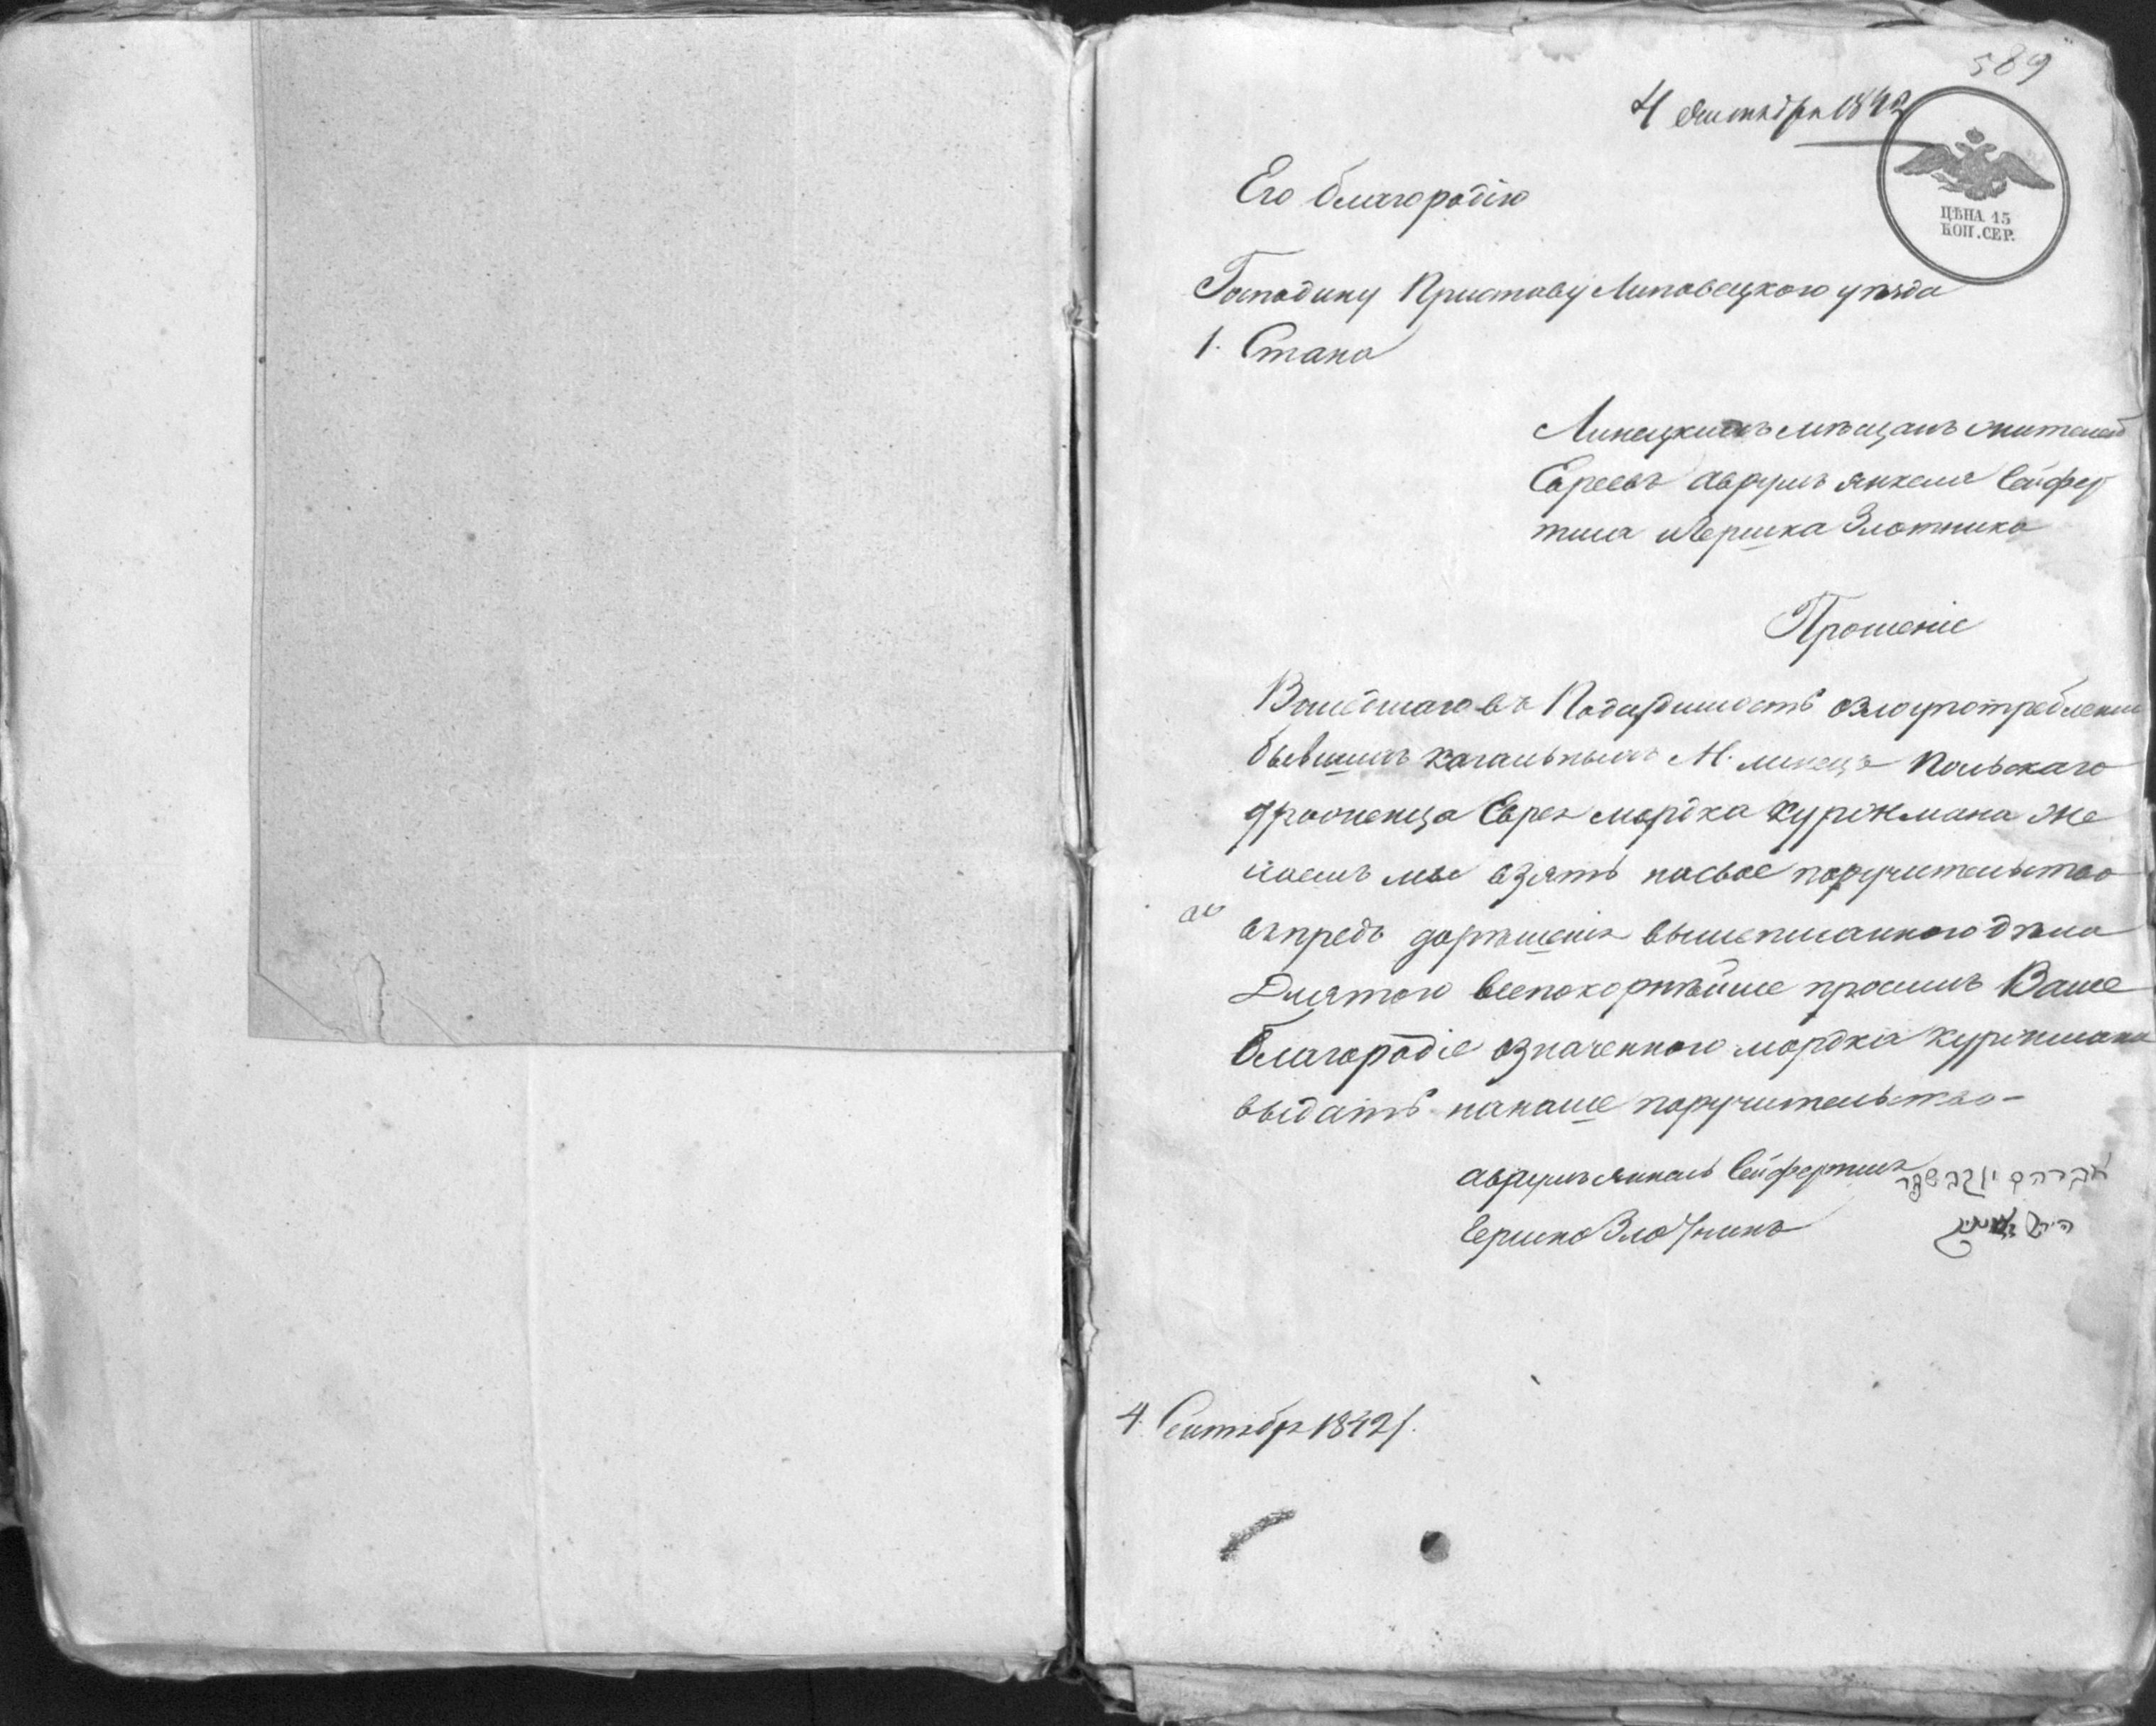 589
4 Сентября 1842
ЦѢНА 15
КОП. СЕР.
Его благородію
Господину Приставу Липовецкого уѣзда
1. Стана
Линецкихъ мѣщанъ жителей
Евреевъ Аврумъ Янкеля Сейфер
тиса и Гершка Злотника
Прошеніе
Вошедшаго въ Подсудимость озлоупотребленіи
бывшимъ кагальнымъ М. Линецъ Польскаго
Еврея Мордка Куржмана же
лаемъ мы взять насвое поручительство
впредь дорѣшенія вышеписанного дѣла
Длятого всепокорнѣйше просимъ Ваше
благородіе означенного Мордка Куржмана
выдать нанаше поручительство-
Аврумъ Янкель
Гершко Злотникъ
אברהם יעקב
הירש
4. Сентября 1842 г.